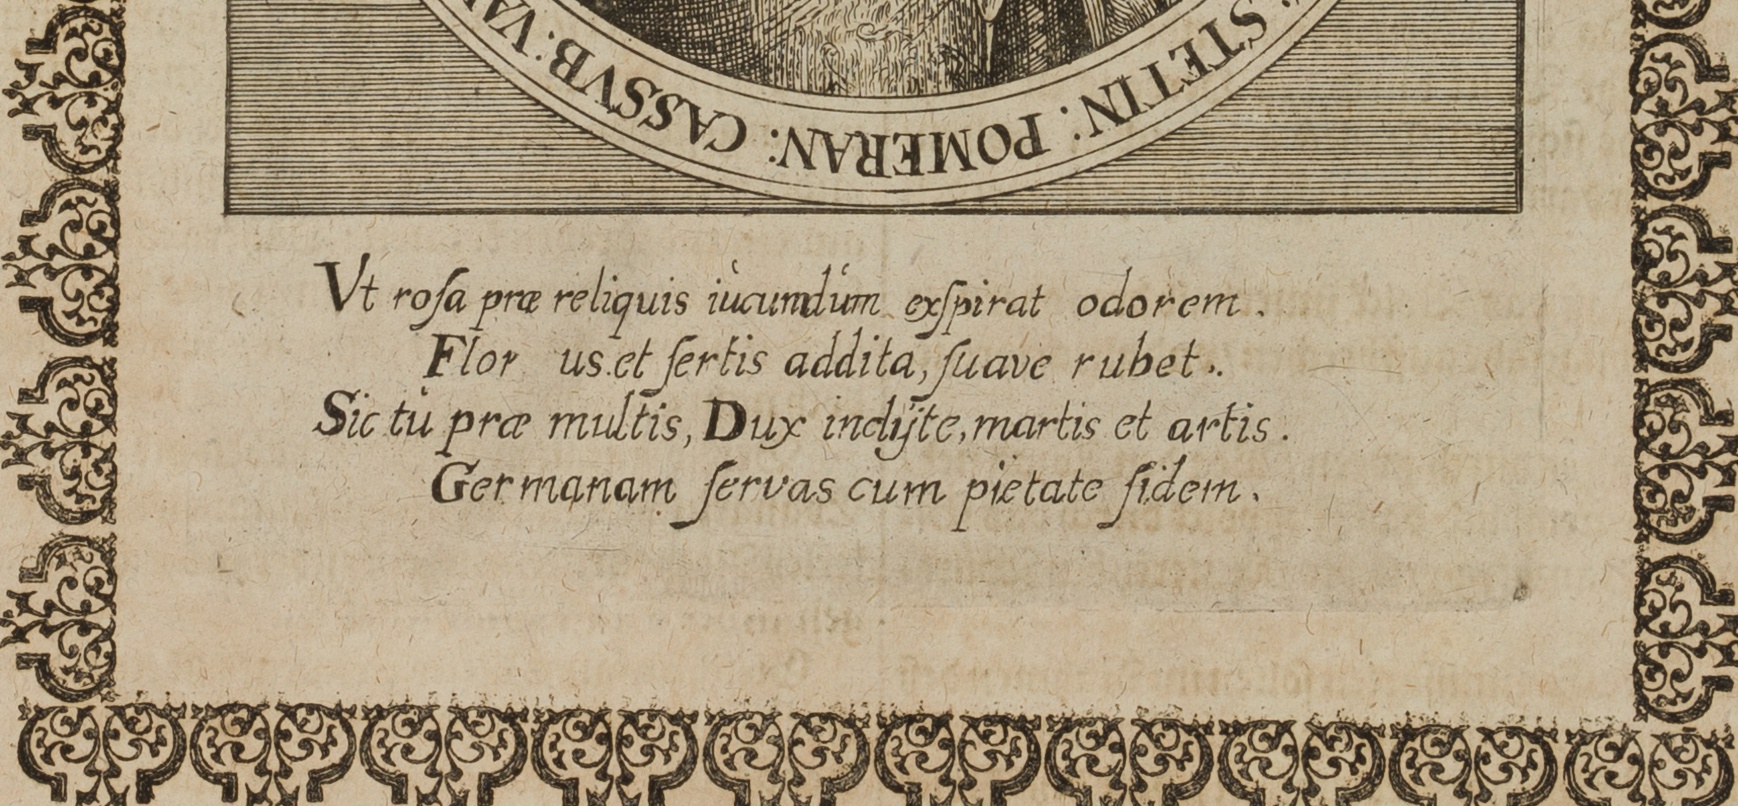 STETIN: POMERAN: CASSVB: VA
Vt rosa præ reliquis iùcundúm exſpirat odorem.
Flor us.et ſertis addita, ſuave rubet..
Sic tù præ multis, Dux inclÿte, martis et artis.
Germanam ſervas cum pietate fidem.